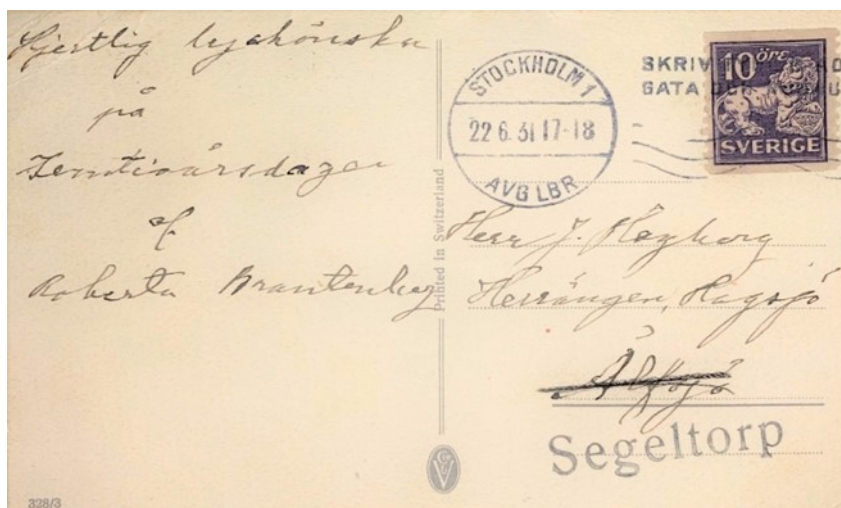 Hjertlig lyckönskan
på
Femtioårsdagen
af
Roberta Brantenberg
328/3
Printed in Switzerland
STOCKHOLM 1
22 6. 31 17-18
AVG LBR
SKRIV
GATA OCH
10 öre
SVERIGE
Herr J. Hagborg
Herrängen, Hagsjö
Älfsjö
Segeltorp